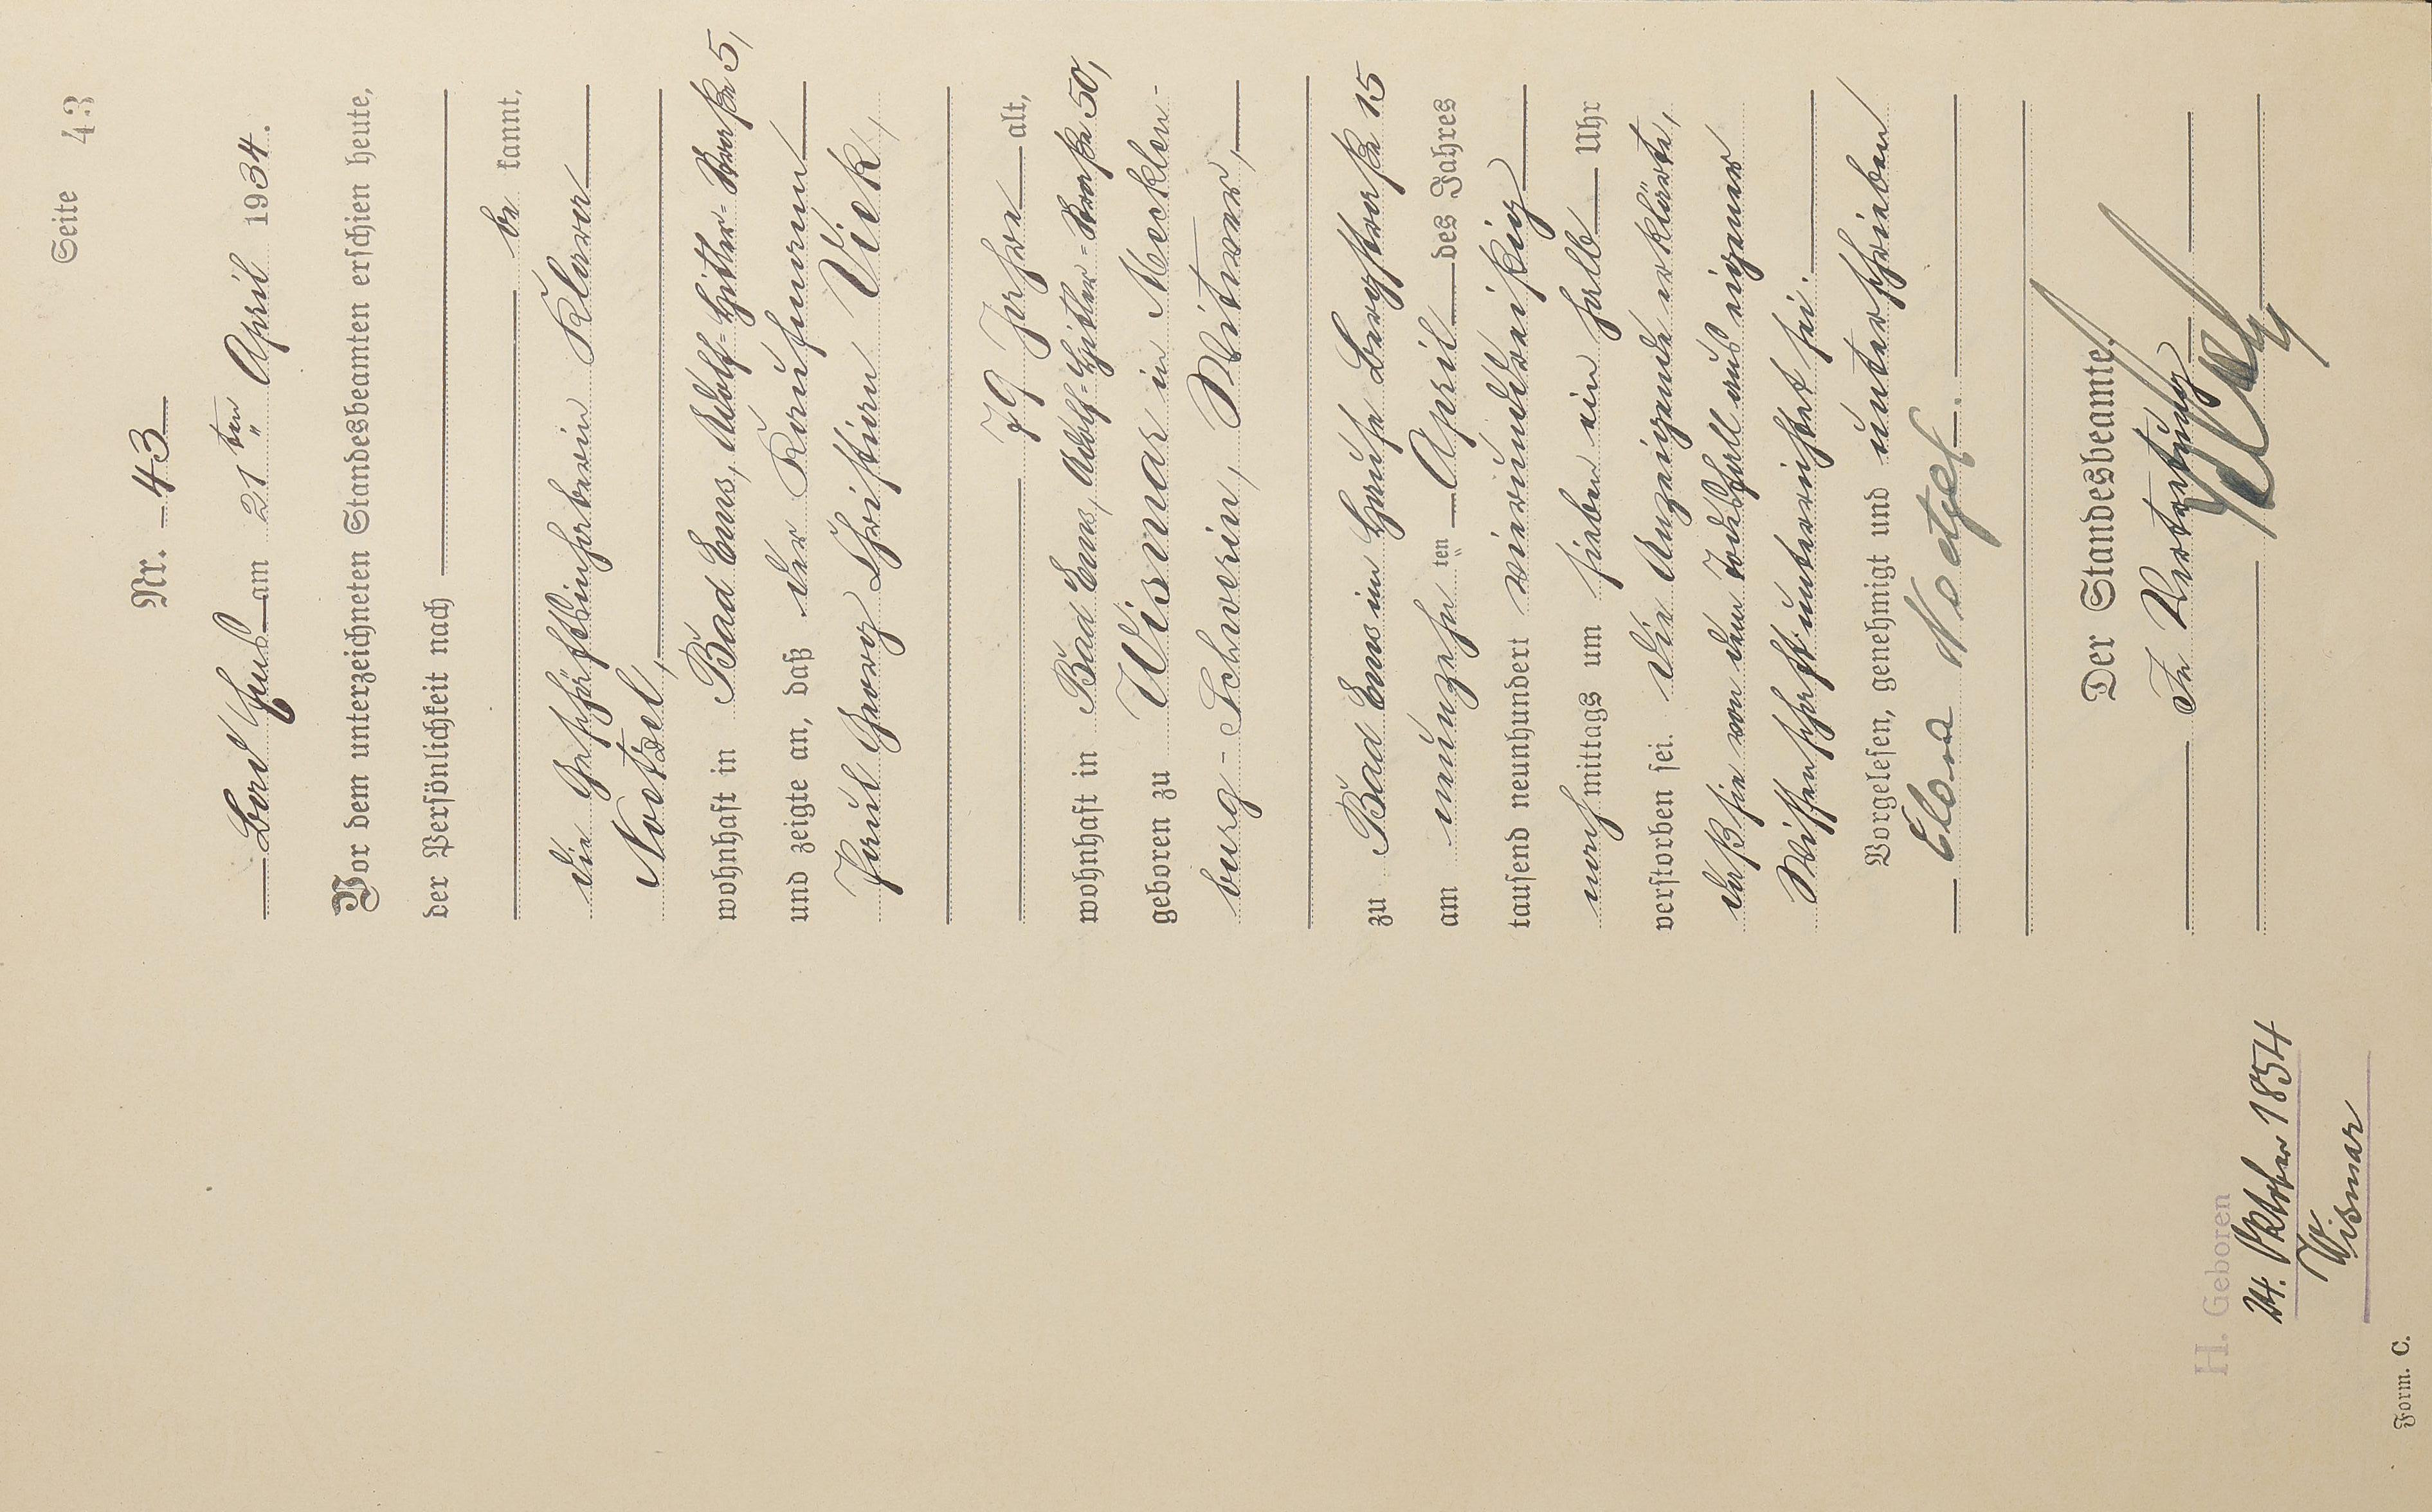 Seite 43
Nr. 43
Bad Ems am 21ten April 1934.
Vor dem unterzeichneten Standesbeamten erschien heute,
der Persönlichkeit nach
be kannt,
die Geschäftsinhaberin Klara
Noetzel,
wohnhaft in Bad Ems, Adolf-Hitler-Straße 5,
und zeigte an, daß der Kaufmann
Paul Georg Christian Vick,
79 Jahre alt,
wohnhaft in Bad Ems, Adolf-Hitler-Straße 50,
geboren zu Wismar in Mecklen-
burg-Schwerin, Witwer,
zu Bad Ems im Hause Bergstraße 15
am neunzehnten April des Jahres
tausend neunhundert vierunddreißig
nachmittags um sieben ein halb Uhr
verstorben sei. Die Anzeigende erklärte,
daß sie von dem Todesfall aus eigener
Wissenschaft unterrichtet sei.
Vorgelesen, genehmigt und unterschrieben
Clara Noetzel.
Der Standesbeamte.
In Vertretung
H. Geboren
24. Oktober 1854
Wismar
Form. C.